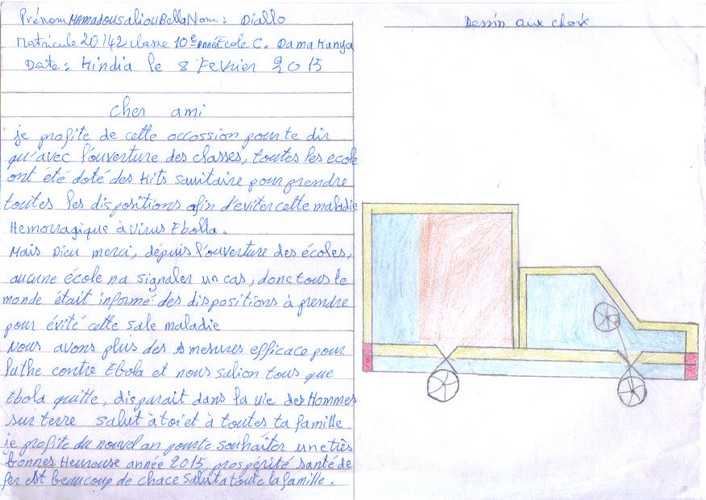 Prénom MamadousaliouBella Nom: Diallo
Matricule 20142 classe 10e année Ecole C. Damakanya
Date: Kindia le 8 Fevrier 2015
cher ami
je profite de cette occossion pour te dir
qu'avec l'ouverture des classes, toutes les ecole
ont été doté des Kits sanitaire pour prendre
toutes les dispositions afin d'eviter cette maladie
Hemorragique à virus Ebolla.
Mais Dieu merci, dépuis l'ouverture des écoles,
aucune école na signaler un cas, donc tous le
monde était informé des dispositions à prendre
pour évité cette sale maladie
Nous avons plus des mesures efficace pour
luthe contre Ebola et nous salion tous que
Ebola quitte, disparait dans la vie des Hommes
sur terre salut à toi et à toutes ta famille
je profite du nouvel an pour te souhaiter une très
bonnes Heurouse année 2015, prospérité santé de
fer est beaucoup de chace salut a toute la famille.
Dessin aux choix